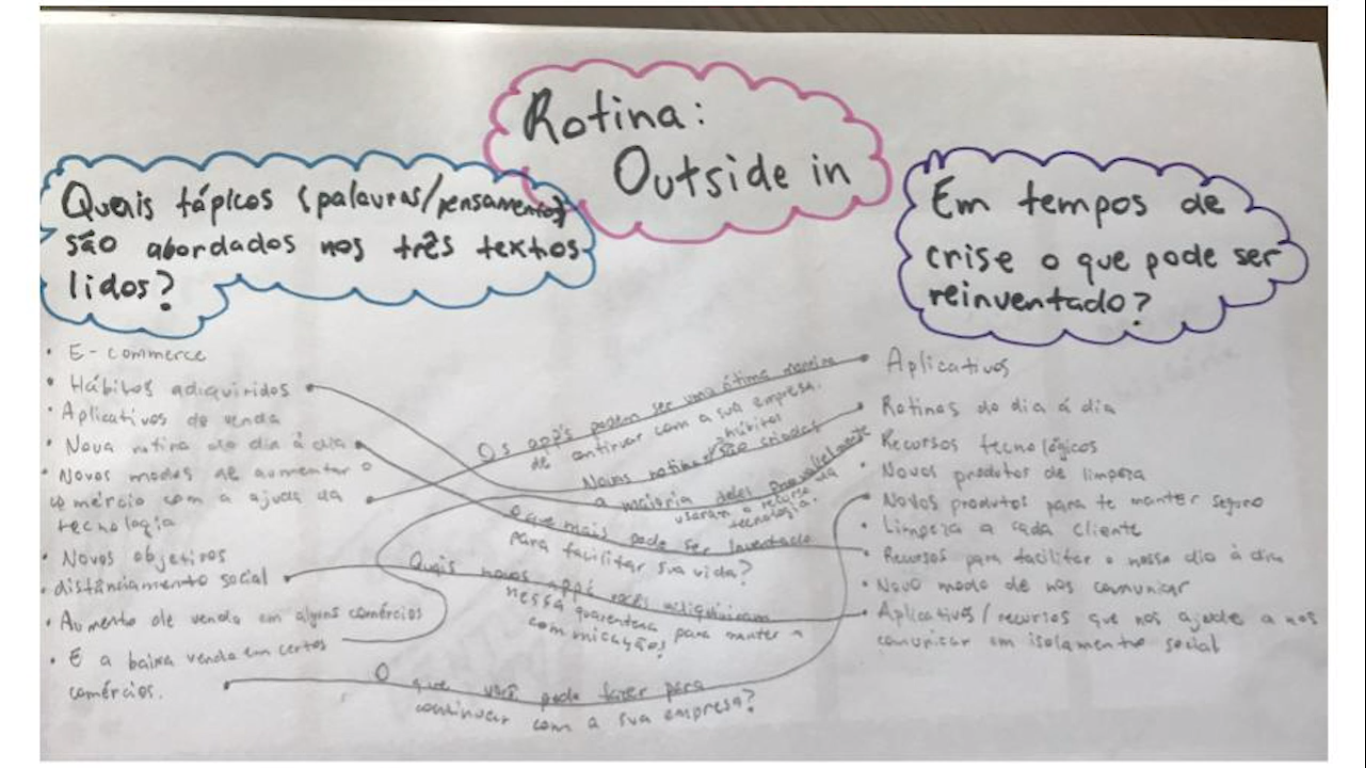 Rotina:
Outside in
Quais tápicos (palavras/pensamentos)
são abordados nos três textos
lidos?
Em tempos de
crise o que pode ser
reinventado?
• E-commerce
• Hábitos adiquiridos
• Aplicativos de venda
• Nova rotina do dia à dia
• Novos modos de aumentar o
comércio com a ajuda da
tecnologia
• Novos objetivos
• distânciamento social
• Aumento de venda em alguns comércios
• E a baixa venda em certos
comércios.
Os app's podem ser uma ótima maneira
de continuar com a sua empresa.
Novas rotinas/hábitos são criadas
a maioria deles
usaram o recurso da
tecnologia.
O que mais pode ser inventado
para facilitar sua vida?
Quais novos app's vocês adiquiriram
nessa quarentena para manter a
O que você pode fazer para
continuar com a sua empresa?
Aplicativos
Rotinas do dia á dia
Recursos tecnológicos
• Novos produtos de limpeza
Novos produtos para te manter seguro
• Limpeza a cada cliente
Recursos para facilitar o nosso dia à dia
• Novo modo de nos comunicar
• Aplicativos/recursos que nos ajude a nos
comunicar em isolamento social